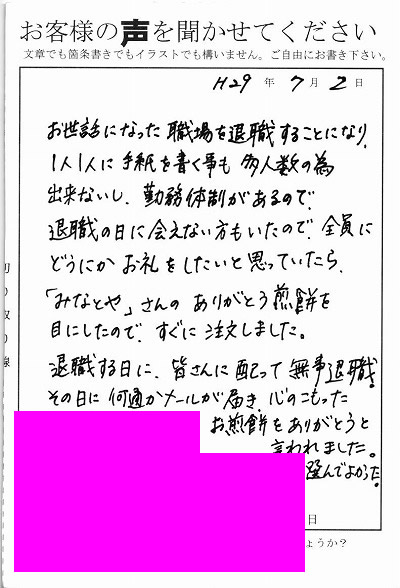 お客様の声を聞かせてください
文章でも箇条書きでもイラストでも構いません。ご自由にお書き下さい。
H29 年 7 月 2 日
お世話になった 職場を退職することになり、
1人1人に 手紙を書く事も 多人数の為
出来ないし、勤務体制があるので、
退職の日に会えない方もいたので、全員に
どうにか お礼をしたいと思っていたら、
「みなとや」さんの ありがとう煎餅を
目にしたので、すぐに 注文しました。
退職する日に、皆さんに 配って 無事退職。
その日に 何通かメールが届き、心のこもった
お煎餅を ありがとうと
言われました。
選んでよかった。
日
ょうか？
切り取り線